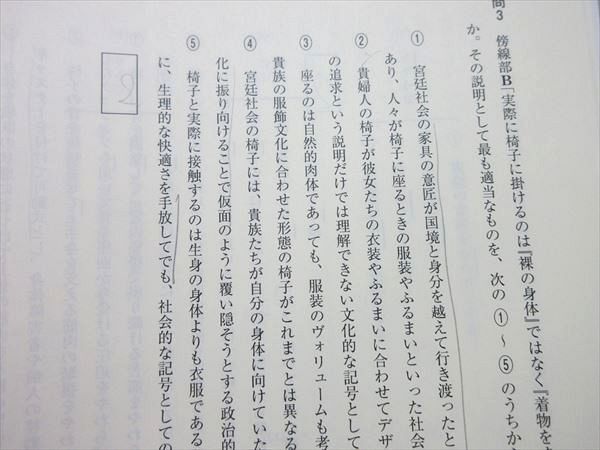 問3 傍線部B「実際に椅子に掛けるのは『裸の身体』ではなく『着物を
か。その説明として最も適当なものを、次の①～⑤のうちか
① 宮廷社会の家具の意匠が国境と身分を越えて行き渡ったと
あり、人々が椅子に座るときの服装やふるまいといった社会
② 貴婦人の椅子が彼女たちの衣装やふるまいに合わせてデザ
の追求という説明だけでは理解できない文化的な記号として
③ 座るのは自然的肉体であっても、服装のヴォリュームも考
貴族の服飾文化に合わせた形態の椅子がこれまでとは異なる
④ 宮廷社会の椅子には、貴族たちが自分の身体に向けていた
化に振り向けることで仮面のように覆い隠そうとする政治的
⑤ 椅子と実際に接触するのは生身の身体よりも衣服である
に、生理的な快適さを手放してでも、社会的な記号としての
2